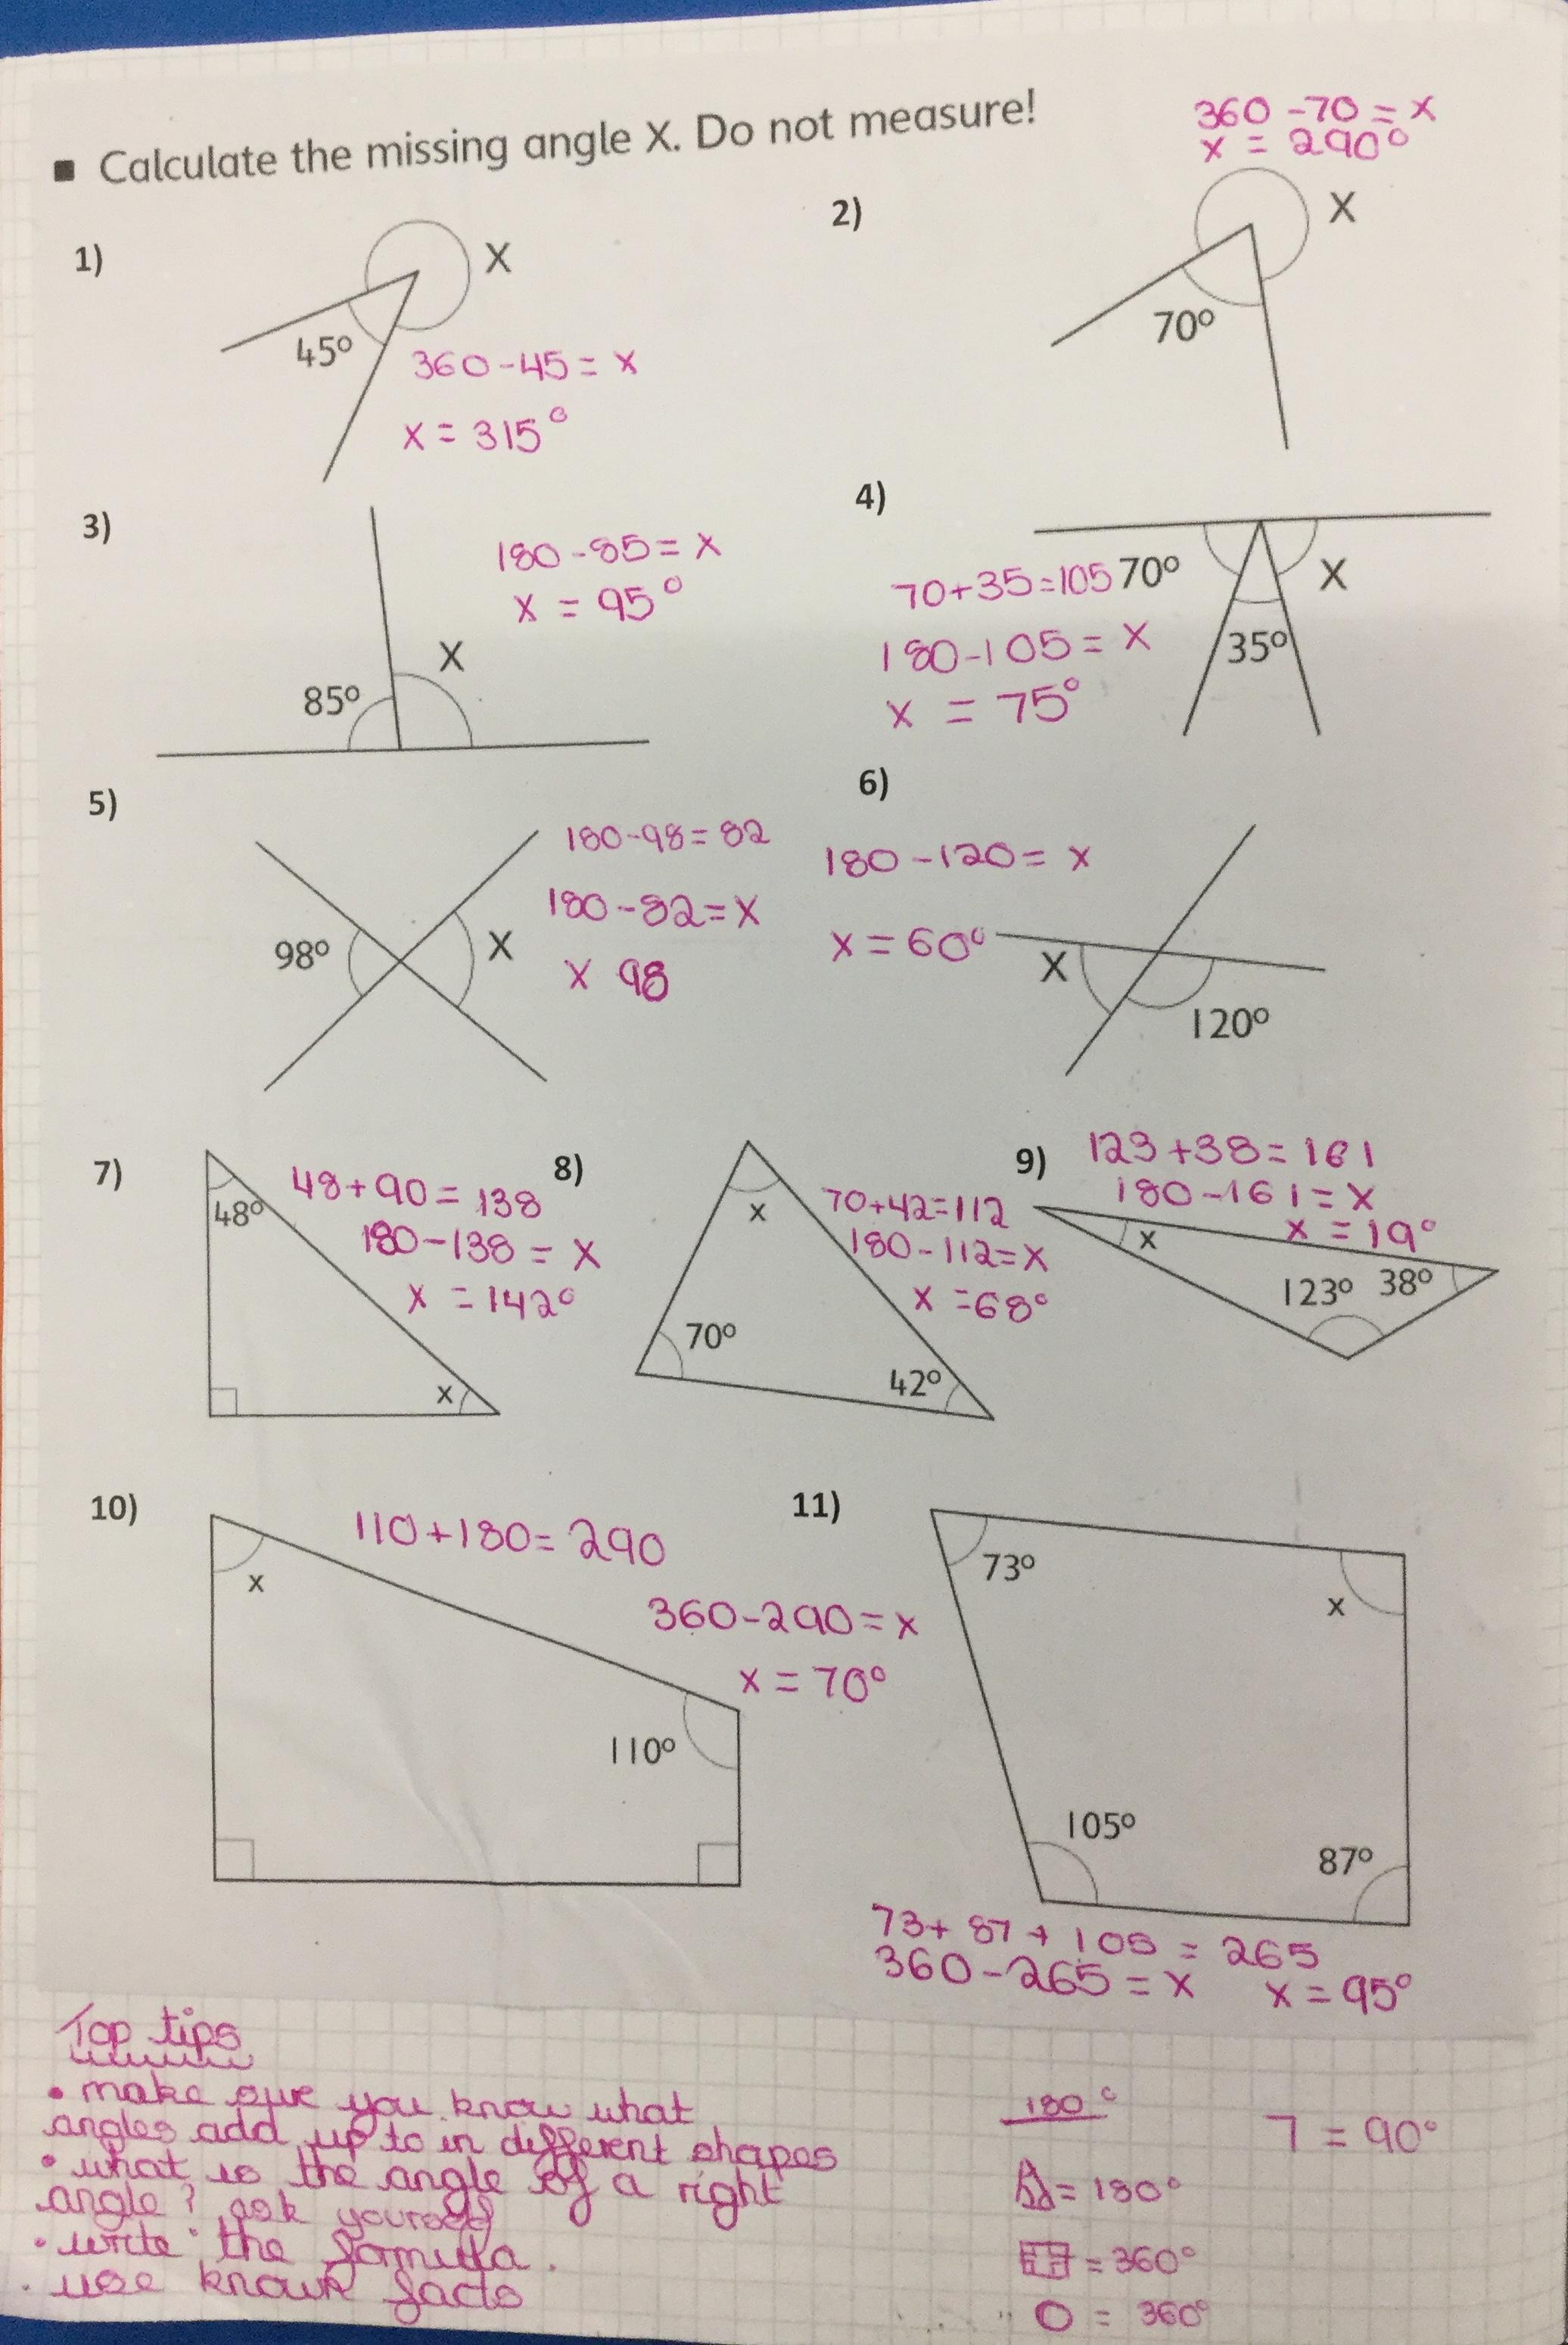 ▪ Calculate the missing angle X. Do not measure!
360 - 70 = x
x = 290°
1)
X
45°
360 - 45 = x
x = 315°
2)
X
70°
3)
180 - 85 = x
x = 95°
X
85°
4)
70 + 35 = 105
70°
X
180 - 105 = x
35°
x = 75°
5)
180 - 98 = 82
98°
X
180 - 82 = x
x 98
6)
180 - 120 = x
x = 60°
X
120°
7)
48°
48 + 90 = 138
180 - 138 = x
x = 142°
x
8)
x
70 + 42 = 112
180 - 112 = x
x = 68°
70°
42°
9)
123 + 38 = 161
180 - 161 = x
x = 19°
x
123°
38°
10)
110 + 180 = 290
x
360 - 290 = x
x = 70°
110°
11)
73°
x
105°
87°
73 + 87 + 105 = 265
360 - 265 = x x = 95°
Top tips
• make sure you know what
angles add up to in different shapes
• what is the angle of a right
angle? ask yourself
• write the formula.
• use known facts
180°
= 90°
= 180°
= 360°
= 360°